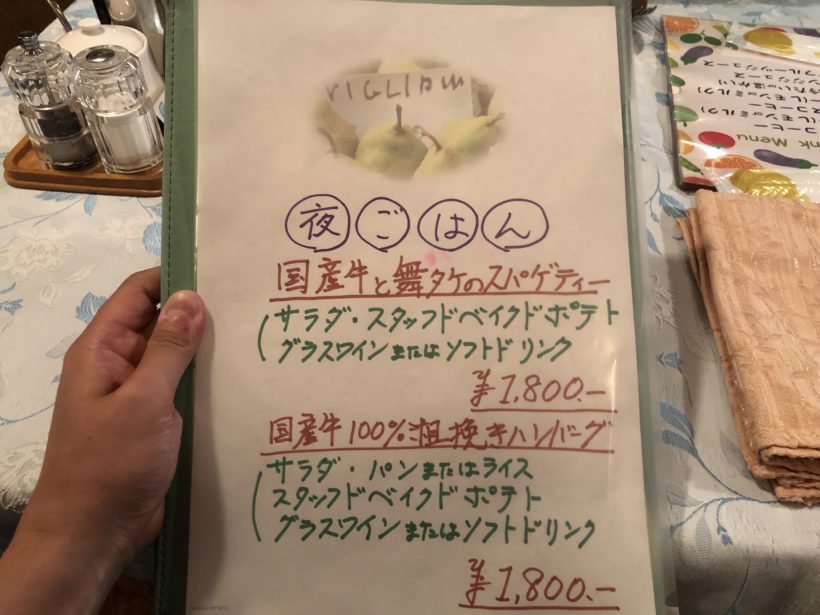 夜ごはん
国産牛と舞タケのスパゲティー
サラダ・スタッフドベイクドポテト
グラスワインまたはソフトドリンク
¥1,800.-
国産牛100%粗挽きハンバーグ
サラダ・パンまたはライス
スタッフドベイクドポテト
グラスワインまたはソフトドリンク
¥1,800.-
nk Menu
コーヒー